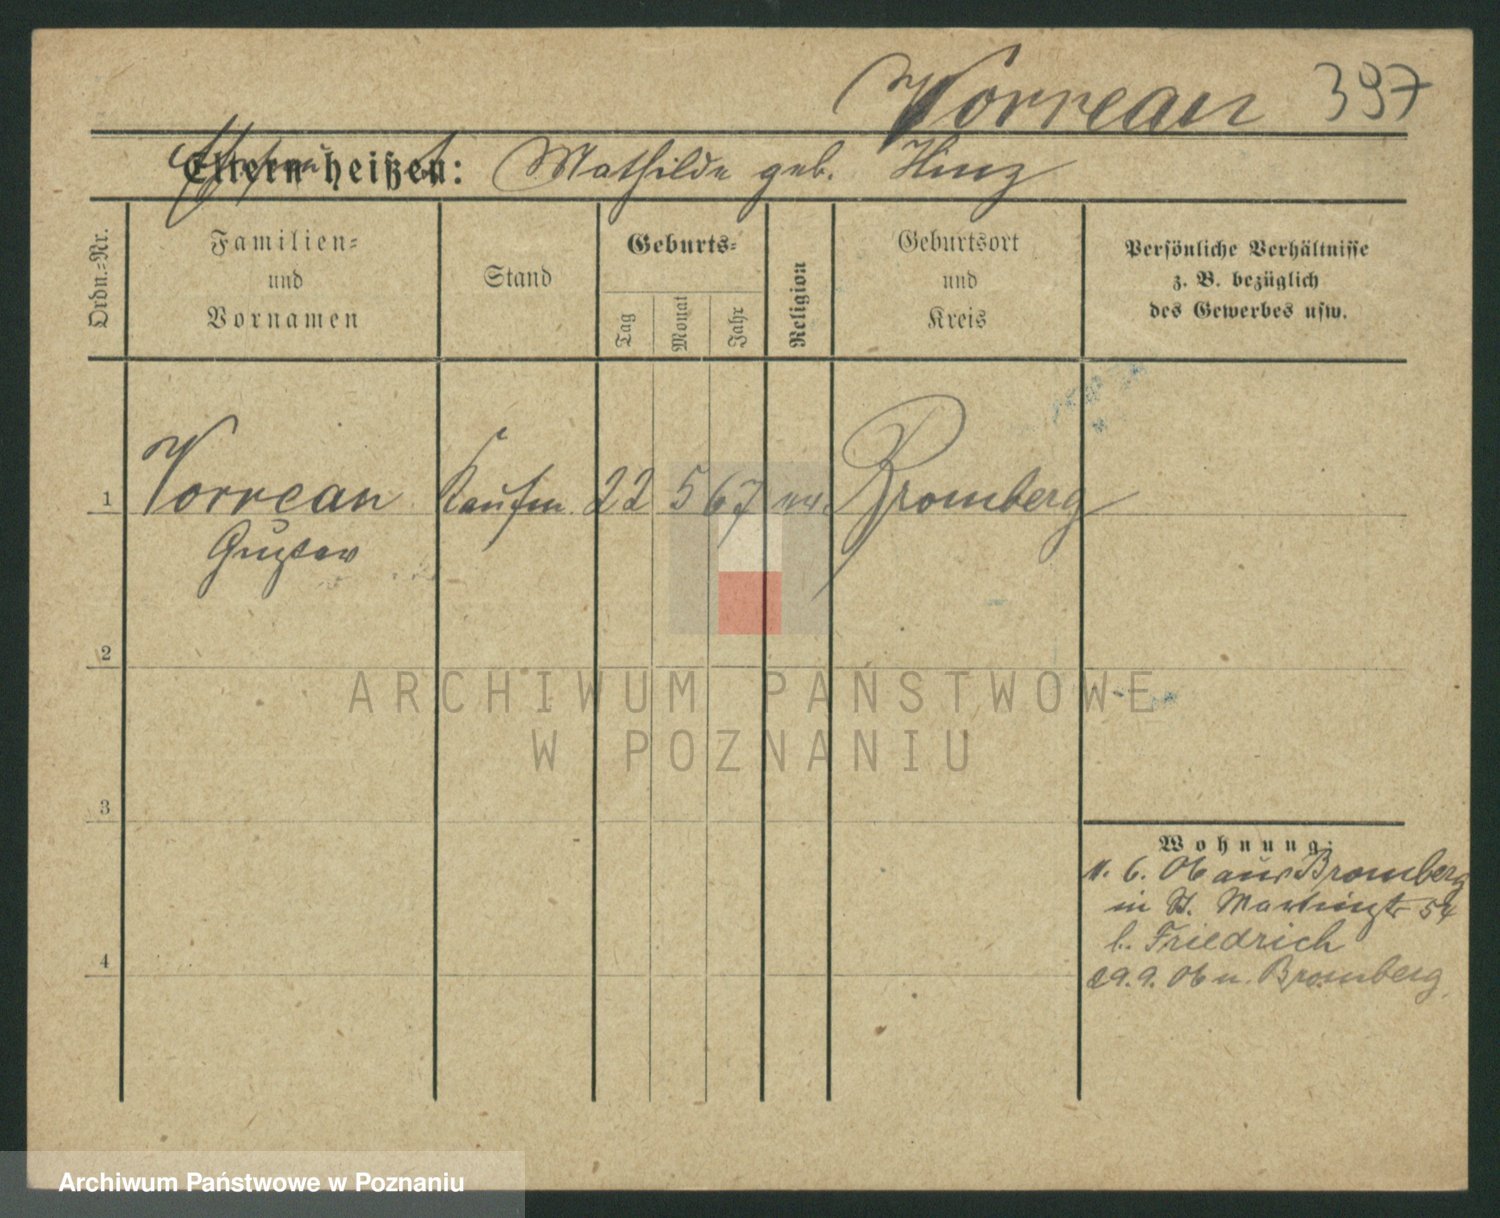 Vorrean 397
Eltern heißen: Mathilde geb. Hinz
Ordn.-Nr.
Familien-
und
Vornamen
Stand
Geburts-
Tag
Monat
Jahr
Religion
Geburtsort
und
Kreis
Persönliche Verhältnisse
z. B. bezüglich
des Gewerbes usw.
1 Vorrean Kaufm. 22 5 67 Bromberg
Gustav
2
ARCHIWUM PAŃSTWOWE
W POZNANIU
3
Wohnung:
6. 06 aus Bromberg
in St. Martinstr 54
b. Friedrich
29. 9. 06 n. Bromberg
4
Archiwum Państwowe w Poznaniu